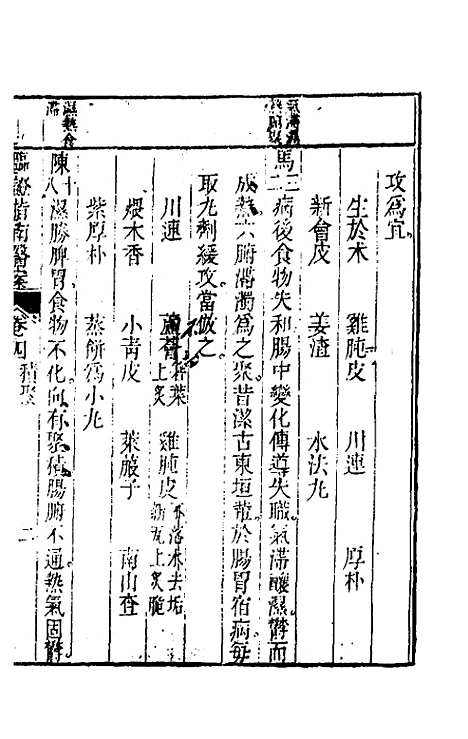 攻爲宜
生於术 雞肫皮 川連 厚朴
新會皮 姜渣 水法丸
氣滯濕熱
馬三二 病後食物失和腸中變化傳導失職氣滯釀濕鬱而
成熱六腑滯濁爲之聚昔潔古東垣輩於腸胃宿病每
取丸劑緩攻當倣之
川連 蘆薈 雞肫皮不落水去垢新瓦上炙脆
煨木香 小青皮 萊菔子 南山查
紫厚朴 蒸餅爲小丸
濕熱食滯
陳十八 濕勝脾胃食物不化向有聚積腸腑不通熱氣固鬱
臨證指南醫案 卷四 積聚 二